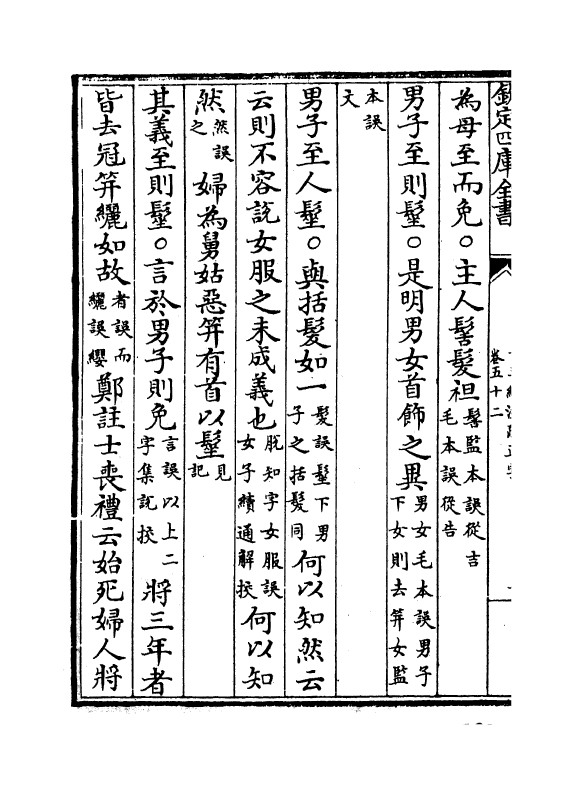 欽定四庫全書
卷五十二
為母至而免○主人髺髮袒髺監本誤從吉毛本誤從告
男子至則髽○是明男女首飾之異男女毛本誤男子下女則去笄女監
本誤文
男子至人髽○與括髮如一髮誤髽下男子之括髮同何以知然云
云則不容說女服之未成義也脫知字女服誤女子續通解挍何以知
然然誤之婦為舅姑惡笄有首以髽見記
其義至則髽○言於男子則免言誤以上二字集說挍將三年者
皆去冠笄纚如故者誤而纚誤纓鄭註士喪禮云始死婦人將